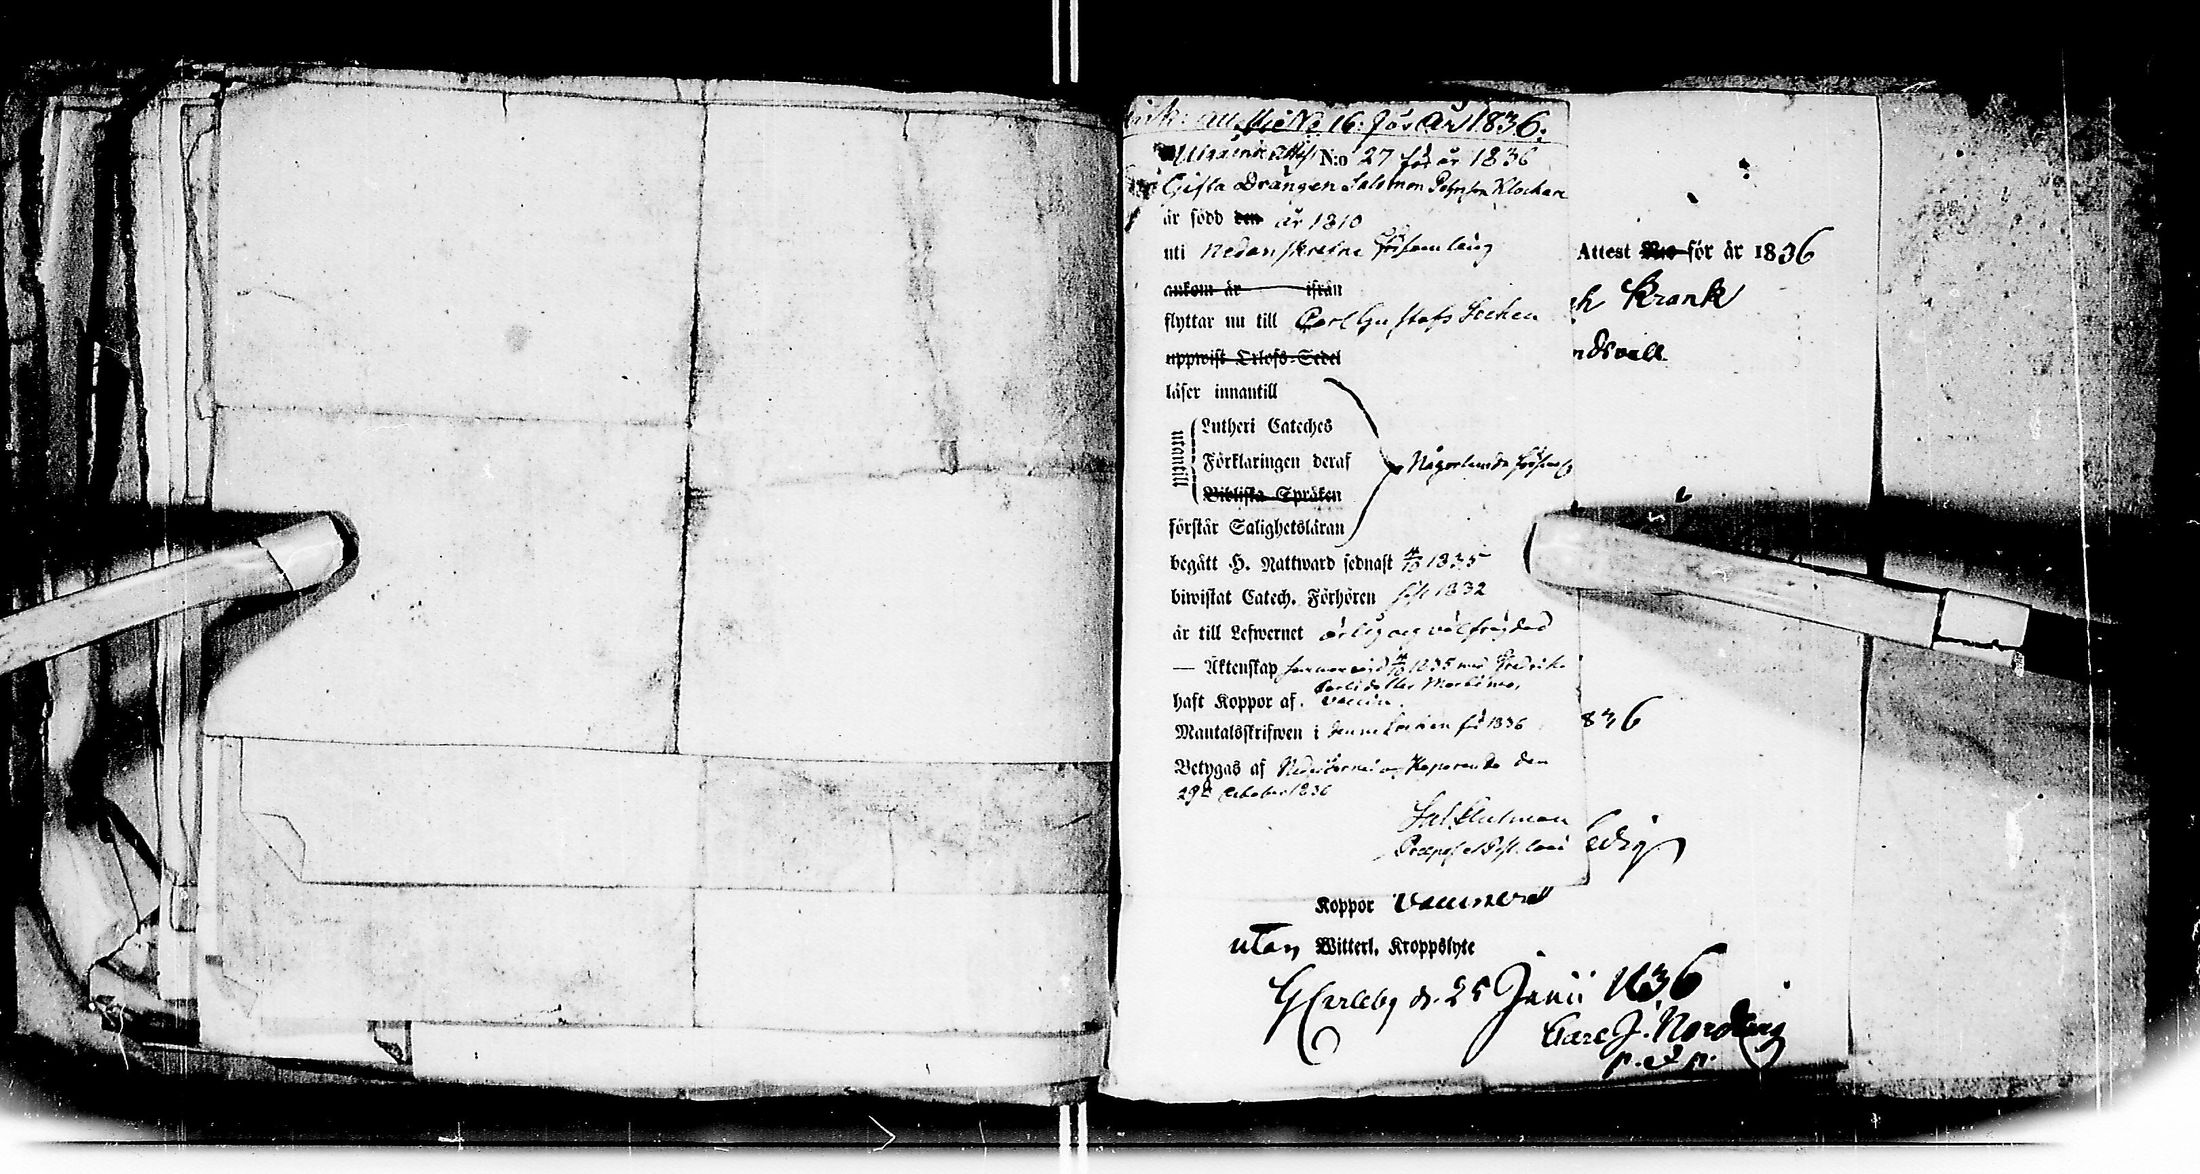 Att: No 16. för År 1836.
Utgående Attest N:o 27 för år 1836
Gifta Drängen Salomon Johnson Klockare
är född den år 1810
uti Nedanskrefne Församling
ankom år ifrån
flyttar nu till Carl Gustafs Socken
uppwist Orlofs-Sedel
läser innantill
utantill
Lutheri Cateches
Förklaringen deraf
Någorlunda
Bibliska Språken
förstår Salighetsläran
begått H. Nattward sednast 1835
biwistat Catech. Förhören 1832
är till Lefwernet ärlig och välfrägdad
— Äktenskap 1835 med Fredrika
haft Koppor af. vaccin.
Mantalsskrifwen i denna Socken för 1836
Betygas af Nedertorneå och Haparanda den
29de October 1836
Attest N:o för år 1836
h Krank
ndsvall
836
ledig
Koppor Vaccinerad
utan Witterl. Kroppslyte
GCarleby d. 25 Junii 1836
Carl J. Nordling
p. et p.